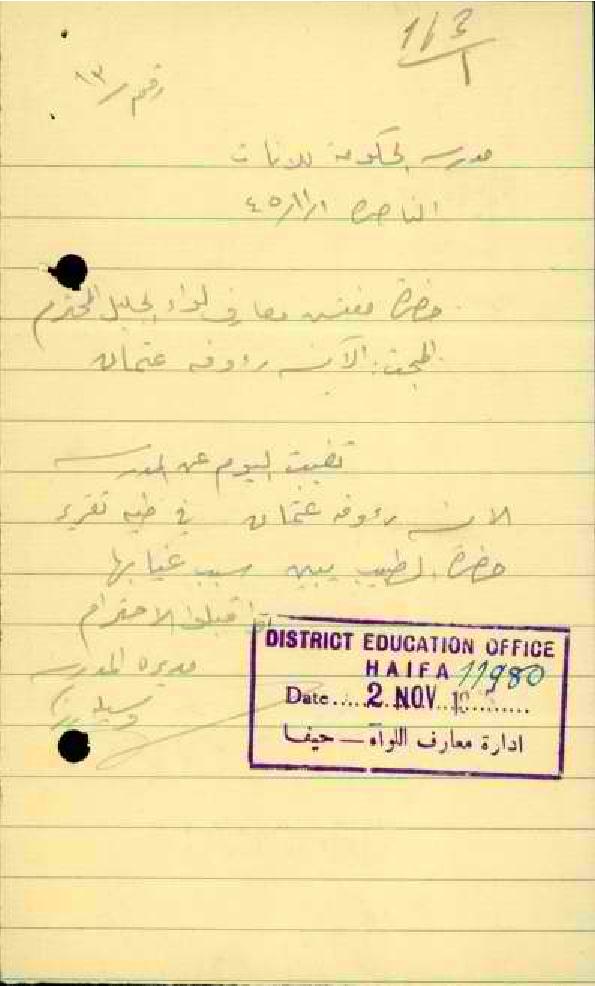 113/1
رقم / ١٣
مدرسة الحكومة للاناث
الناصرة ١/١١/٤٥
حضرة مفتش معارف لواء الجليل المحترم
المبحث: الآنسة رءوفه عثمان
تغيبت اليوم عن المدرسه
الانسه رءوفه عثمان في طيه تقرير
حضرة الطبيب يبين سبب غيابها
واقبلوا الاحترام
مديرة المدرسه
DISTRICT EDUCATION OFFICE
HAIFA 11980
Date..... 2 NOV
ادارة معارف اللواء — حيفا